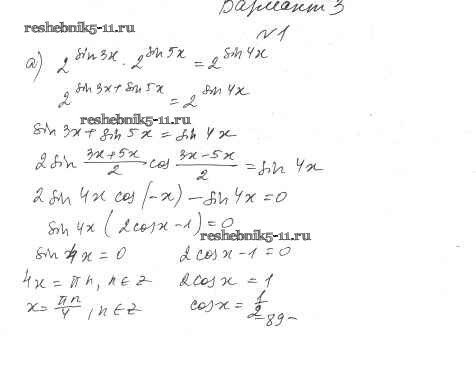 Вариант 3
reshebnik5-11.ru
№1
а) 2^{sin3x} · 2^{sin5x} = 2^{sin4x}
2^{sin3x+sin5x} = 2^{sin4x}
reshebnik5-11.ru
sin3x + sin5x = sin4x
2 sin (3x+5x)/2 cos (3x-5x)/2 = sin 4x
2 sin 4x cos(-x) - sin4x = 0
sin4x (2cosx - 1) = 0
reshebnik5-11.ru
sin 4x = 0   2cosx - 1 = 0
4x = πn, n∈z   2cosx = 1
x = πn/4, n∈z   cosx = 1/2
-89-